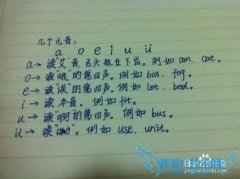 几个元音:
a o e i u ü
a → 读"艾"音,舌头抵在下齿。例如 am, cat.
o → 读"哦"的第四声。例如 box, fog.
e → 读"诶"的第四声。例如 let, bed.
i → 读本音。例如 fit.
u → 读"啊"的第四声。例如 bus.
ü → 读"幽"。例如 use, unit.